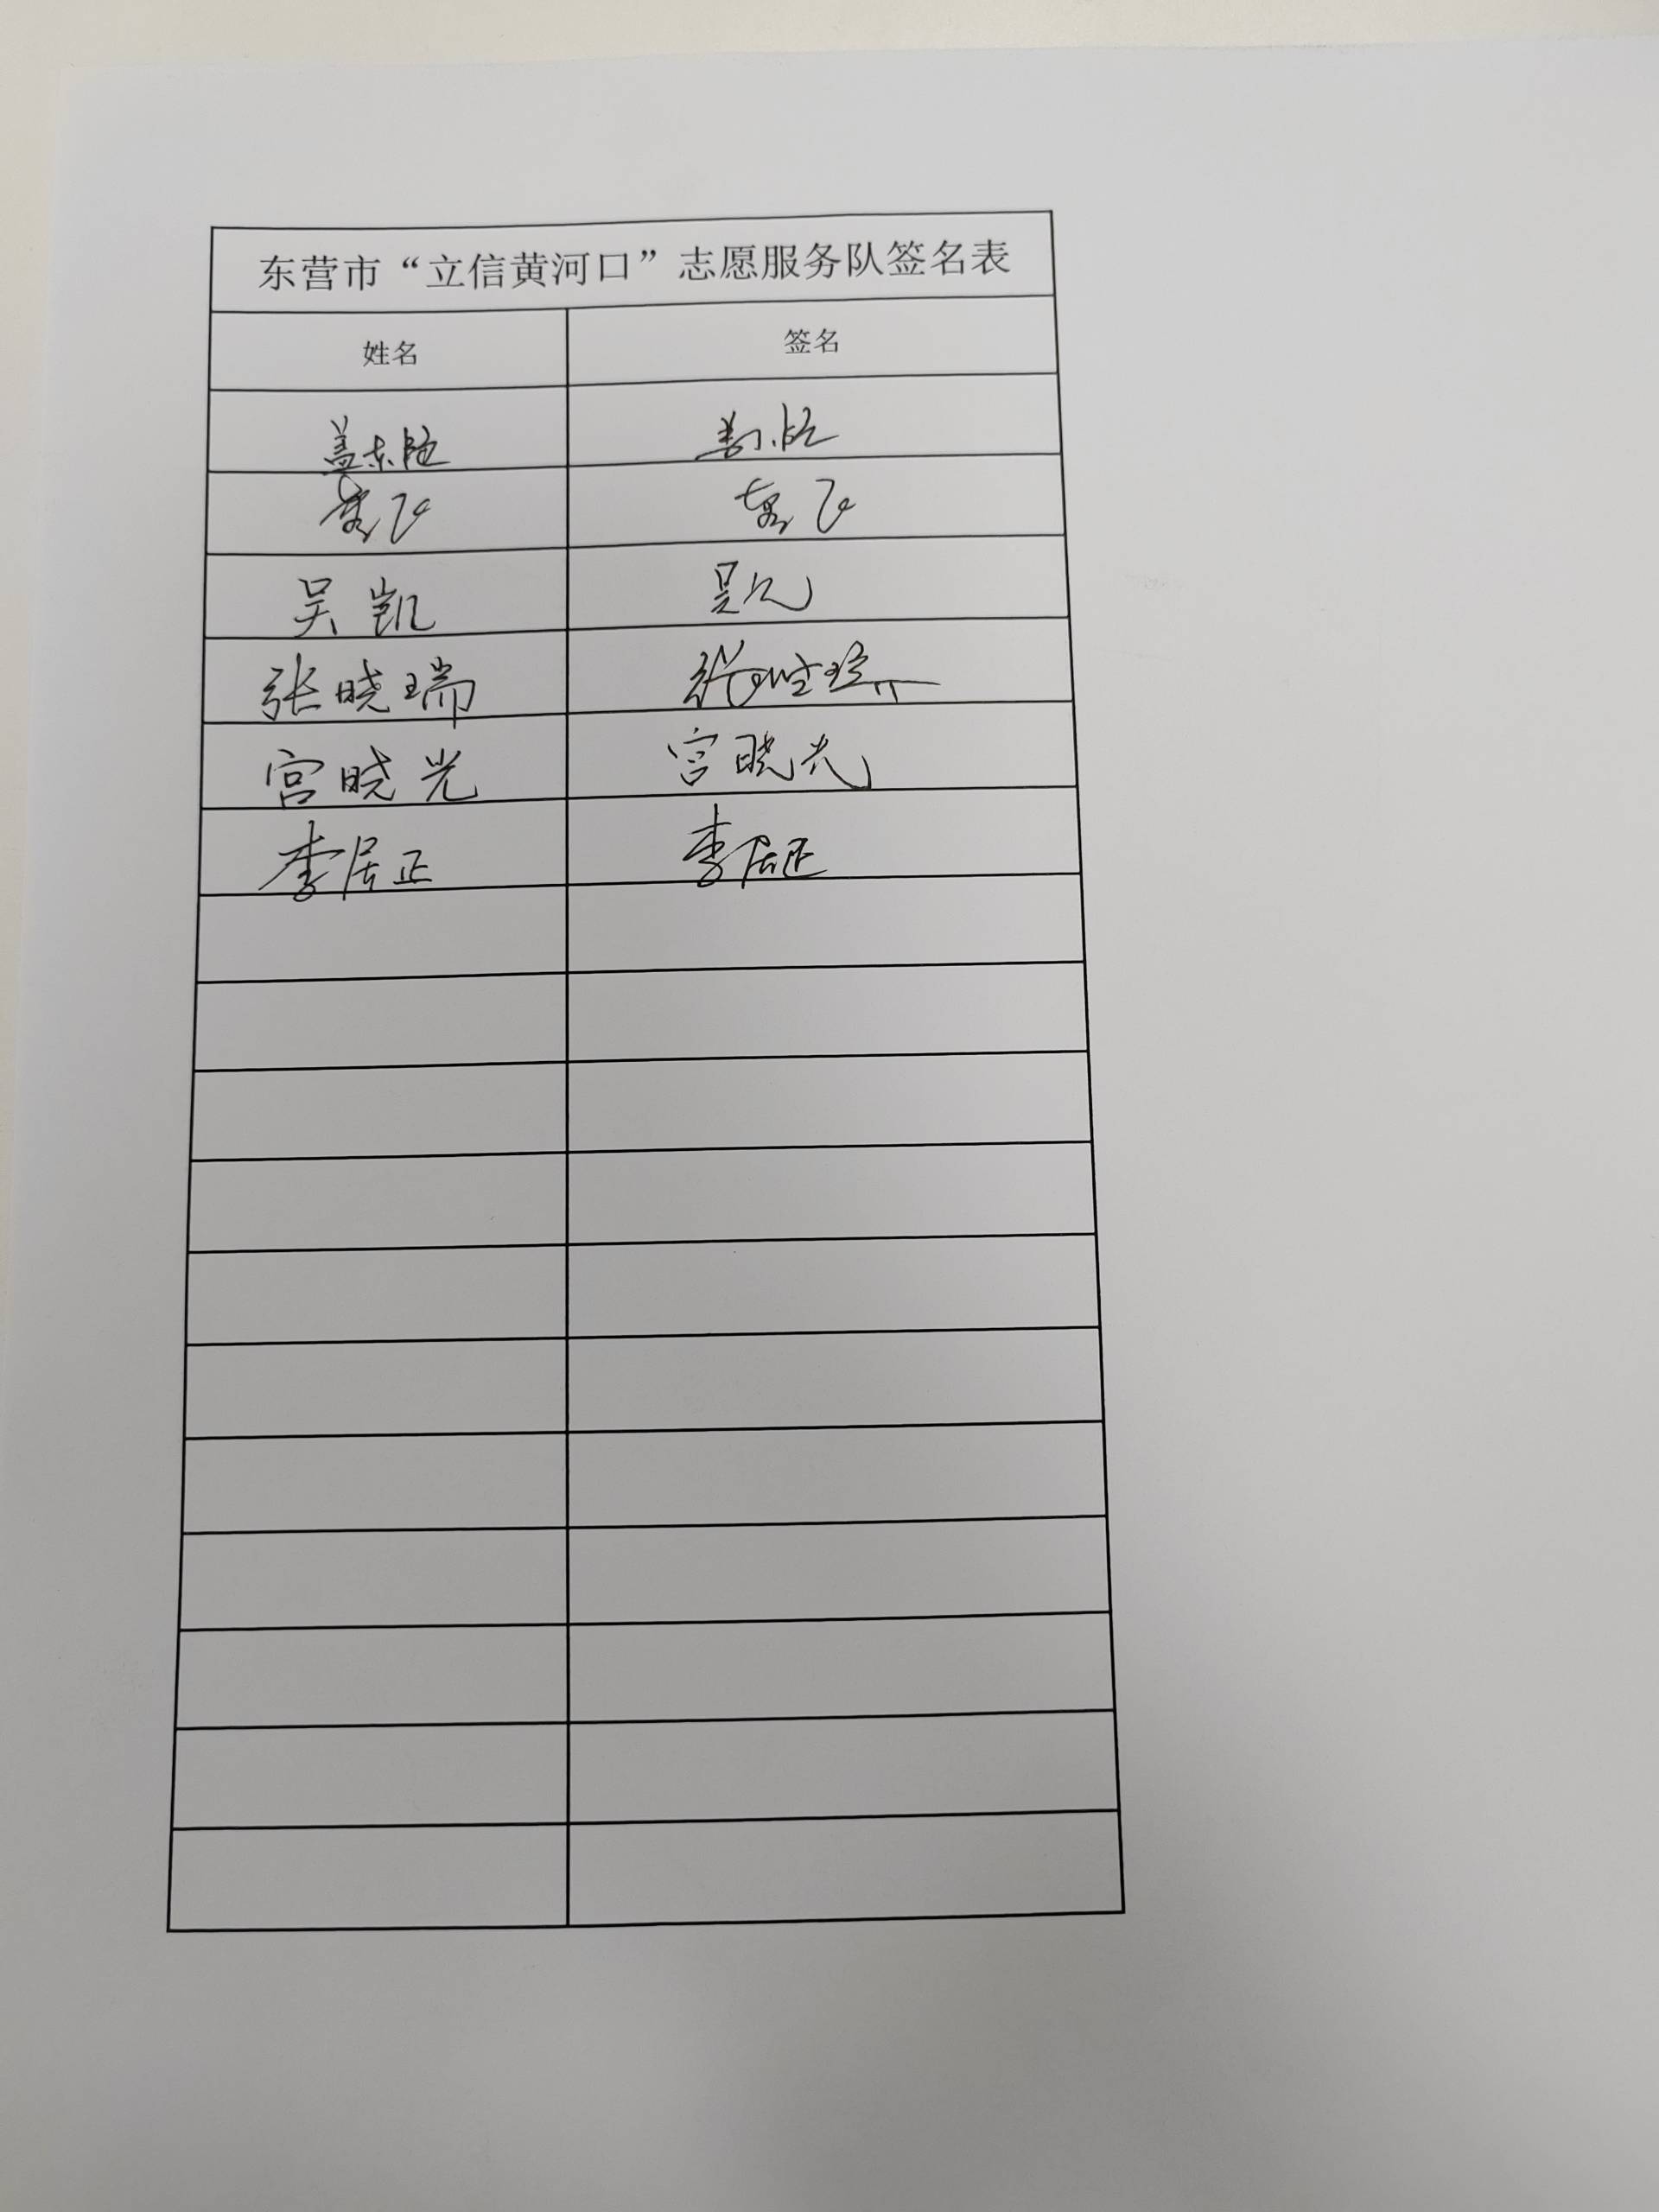 东营市“立信黄河口”志愿服务队签名表
姓名 签名
盖东
飞 飞
吴凯 吴凯
张晓瑞 张晓瑞
宫晓光 宫晓光
李居正 李居正